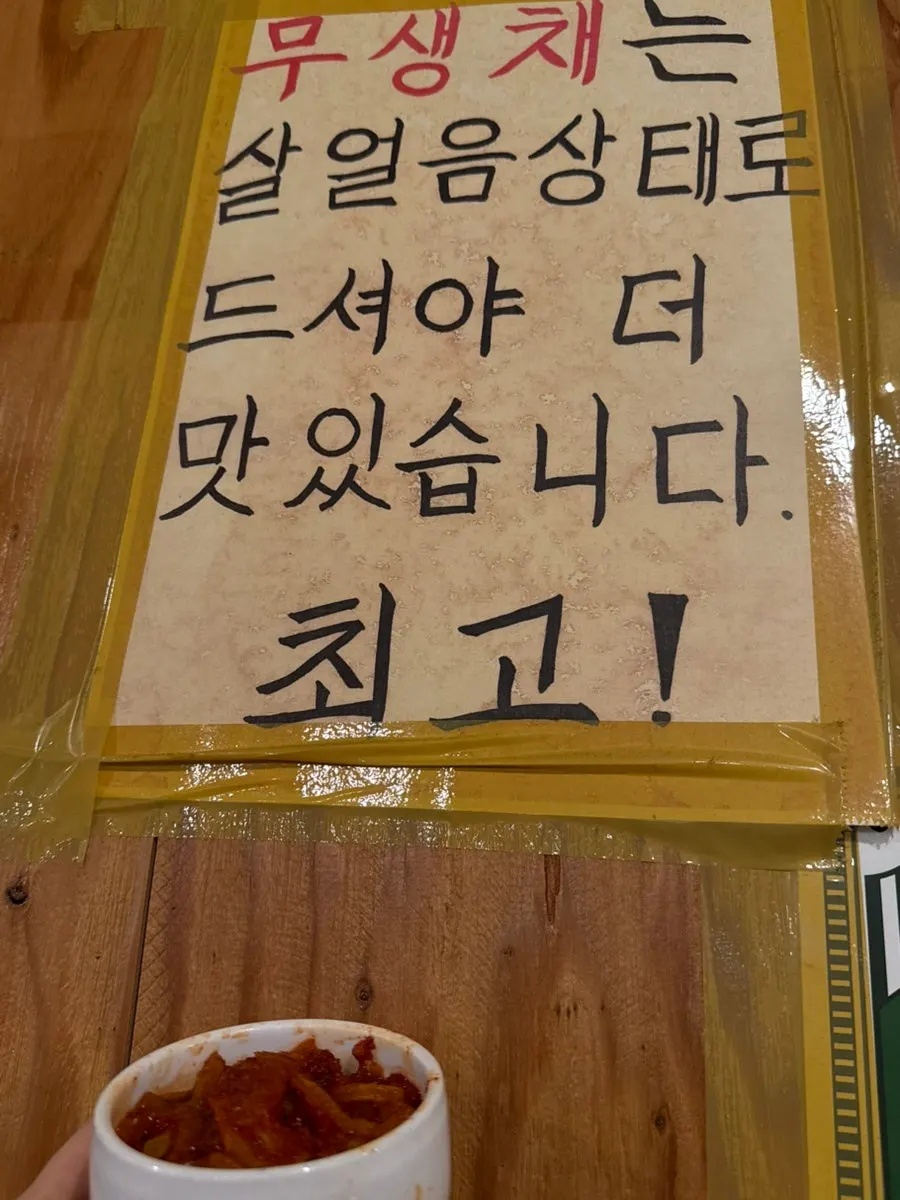 무생채는
살얼음상태로
드셔야 더
맛있습니다.
최고!